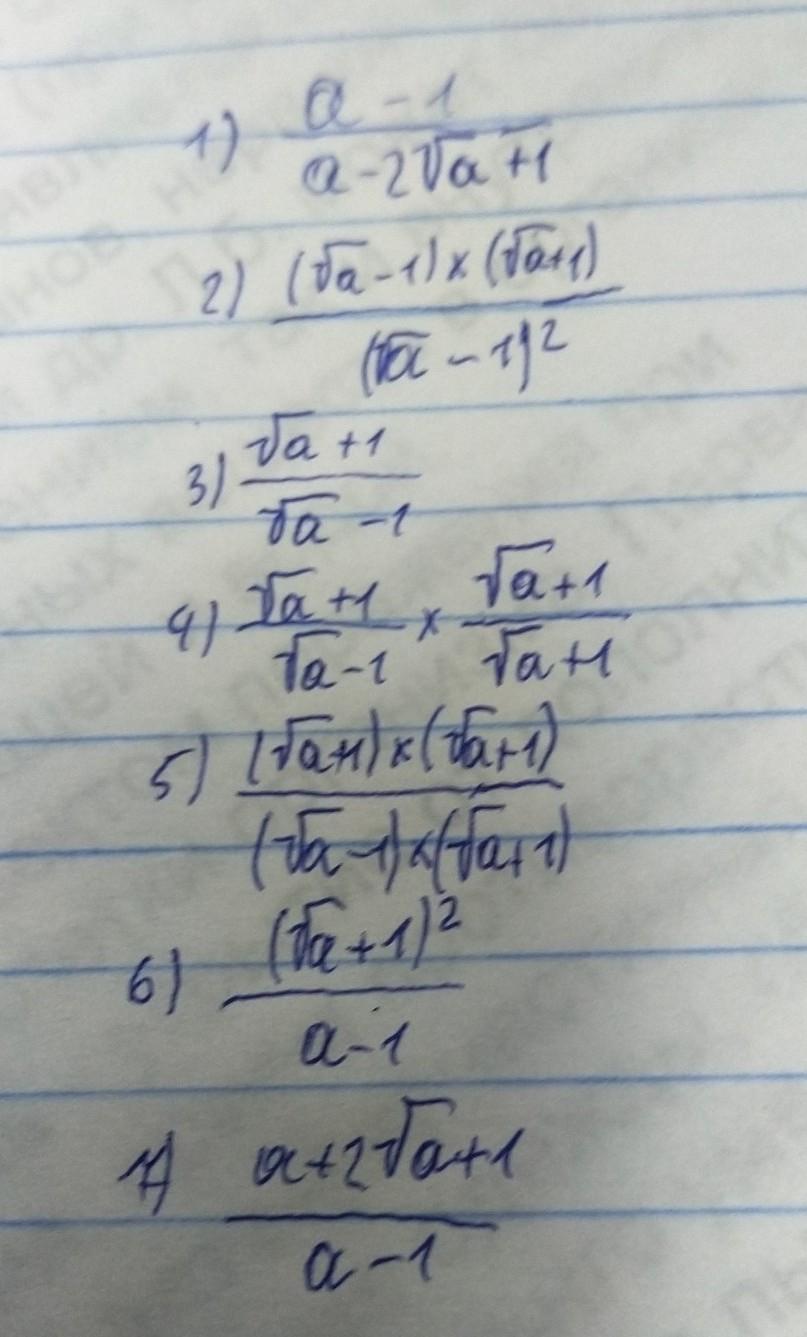 1) (a - 1)/(a - 2√a + 1)
2) ((√a - 1) × (√a + 1))/(√a - 1)²
3) (√a + 1)/(√a - 1)
4) (√a + 1)/(√a - 1) × (√a + 1)/(√a + 1)
5) ((√a + 1) × (√a + 1))/((√a - 1) × (√a + 1))
6) (√a + 1)²/(a - 1)
7) (a + 2√a + 1)/(a - 1)